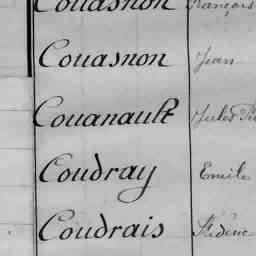 Couasnon François
Couasnon Jean
Couanault Jules
Coudray Emile
Coudrais